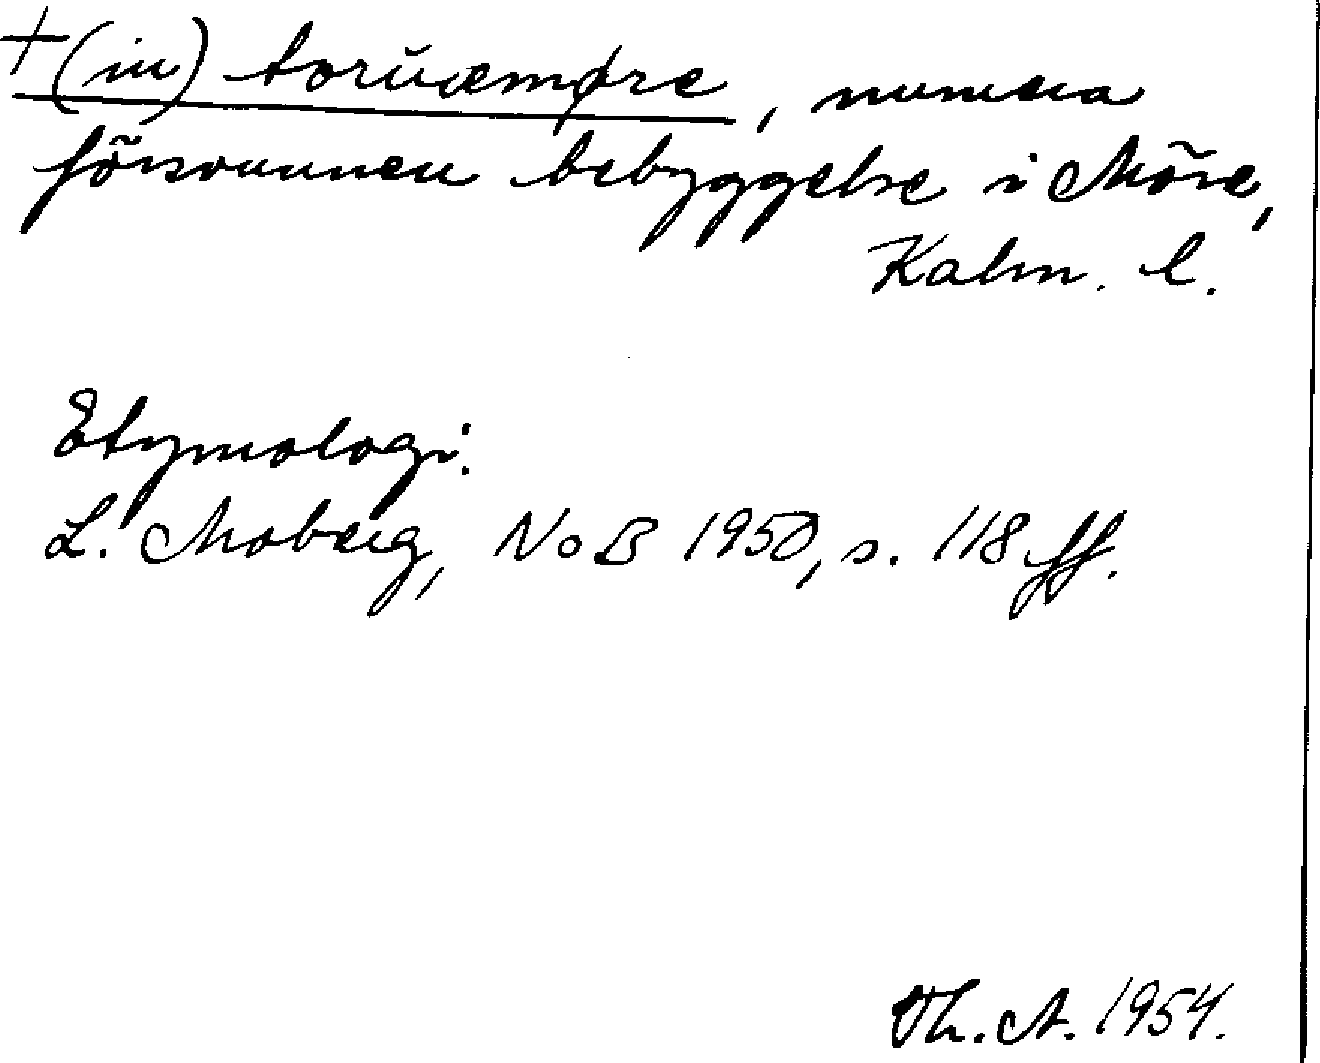 +(in) toruæmøre, numera
försvunnen bebyggelse i Möre,
Kalm. l.
Etymologi:
L. Moberg, NoB 1950, s. 118 ff.
Th. A. 1954.